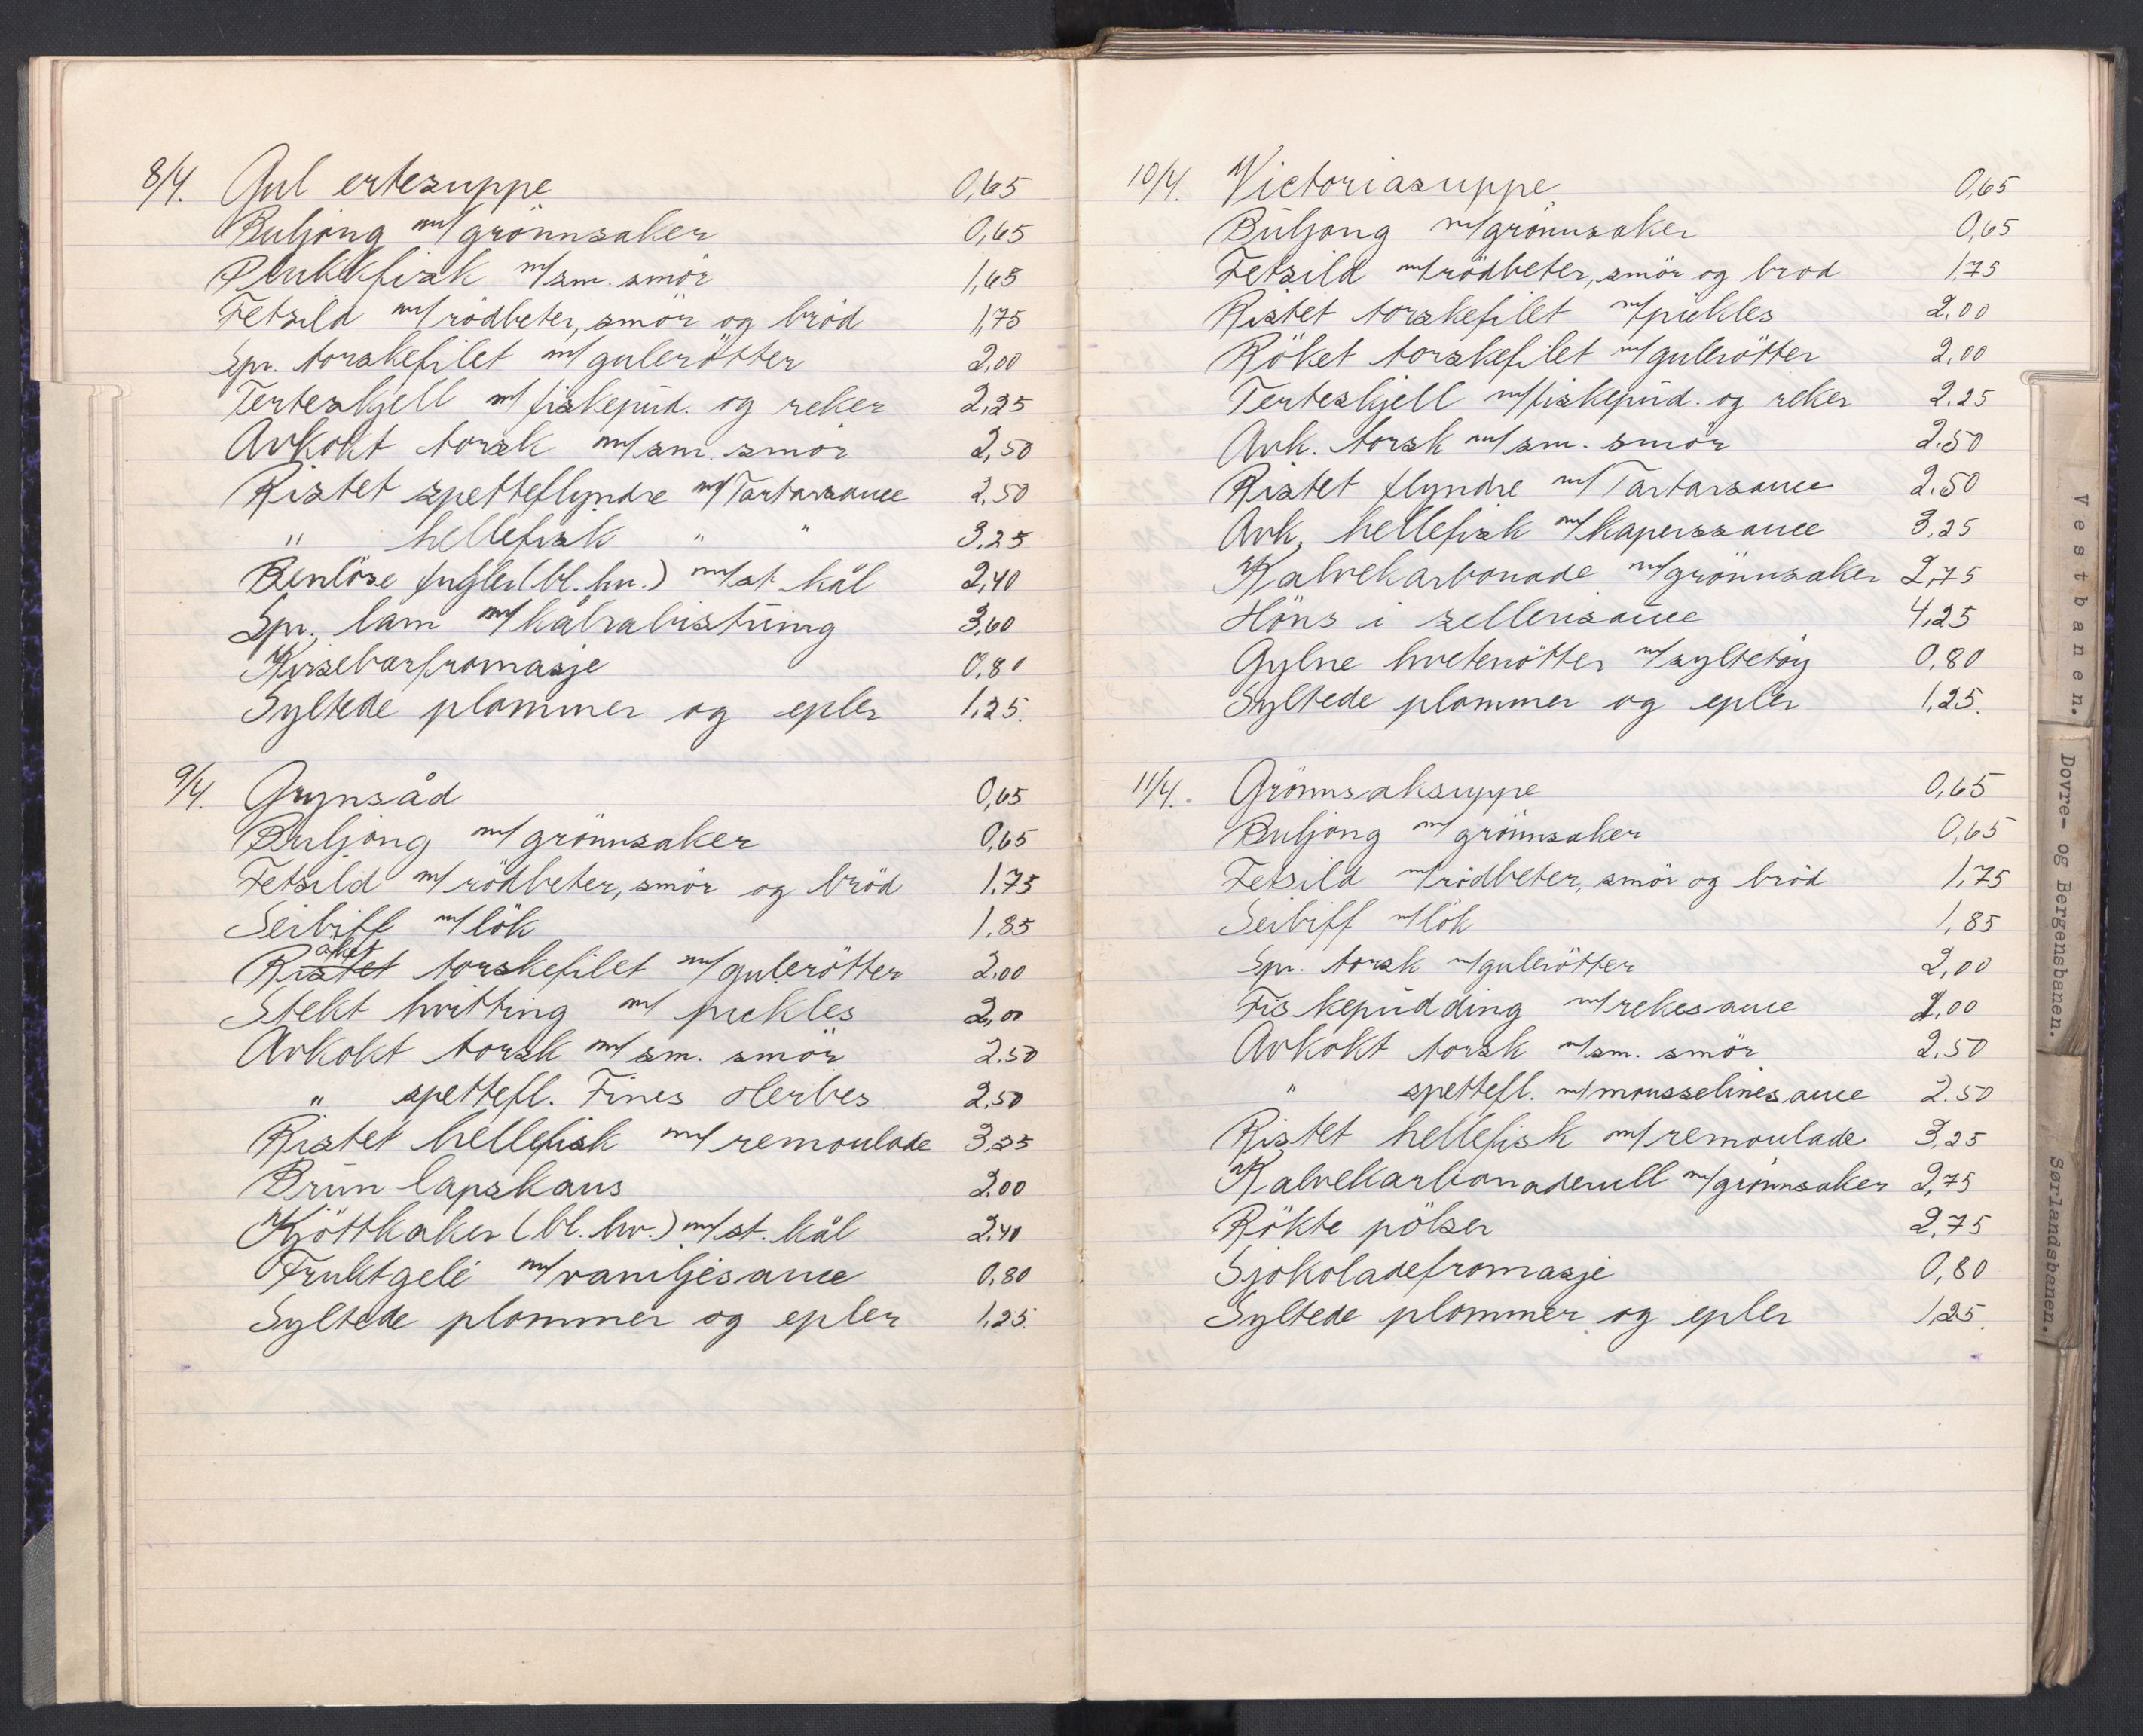 8/4. Gul ertesuppe 0,65
Buljong m/grönnsaker 0,65
Plukkfisk m/sm. smör 1,65
Fetsild m/rödbeter, smör og bröd 1,75
Spr. torskefilet m/gulerötter 2,00
Terteskjell m/fiskepud. og reker 2,25
Avkokt torsk m/sm. smör 2,50
Ristet spetteflyndre m/Tartarsauce 2,50
" hellefisk " " 3,25
Benlöse fugler (bl. hv.) m/st. kål 2,40
Spr. lam m/kålrabistuing 3,60
Kirsebærfromasje 0,80
Syltede plommer og epler 1,25.
9/4. Grynsåd 0,65
Buljong m/grönnsaker 0,65
Fetsild m/rödbeter, smör og bröd 1,75
Seibiff m/lök 1,85
Ristet torskefilet m/gulerötter 2,00
Stekt hvitting m/pickles 2,00
Avkokt torsk m/sm. smör 2,50
" spettefl. Fines Herbes 2,50
Ristet hellefisk m/remoulade 3,25
Brun lapskaus 2,00
Kjöttkaker (bl. hv.) m/st. kål 2,40
Fruktgelé m/vaniljesauce 0,80
Syltede plommer og epler 1,25.
10/4. Victoriasuppe 0,65
Buljong m/grönnsaker 0,65
Fetsild m/rödbeter, smör og bröd 1,75
Ristet torskefilet m/pickles 2,00
Röket torskefilet m/gulerötter 2,00
Terteskjell m/fiskepud. og reker 2,25
Avk. torsk m/sm. smör 2.50
Ristet flyndre m/Tartarsauce 2.50
Avk, hellefisk m/kaperssauce 3,25
Kalvekarbonade m/grönnsaker 2,75
Höns i sellerisauce 4,25
Gylne hvetenötter m/syltetöy 0,80
Syltede plommer og epler 1,25.
11/4. Grönnsaksuppe 0,65
Buljong m/grönnsaker 0,65
Fetsild m/rödbeter, smör og bröd 1,75
Seibiff m/lök 1,85
Spr. torsk m/gulerötter 2,00
Fiskepudding m/rekesauce 2,00
Avkokt torsk m/sm. smör 2,50
" spettefl. m/mousselinesauce 2.50
Ristet hellefisk m/remoulade 3,25
Kalvekarbonaderull m/grönnsaker 2,75
Rökte pölser 2,75
Sjokoladefromasje 0,80
Syltede plommer og epler 1,25.
Vestbanen.
Dovre- og Bergensbanen.
Sørlandsbanen.